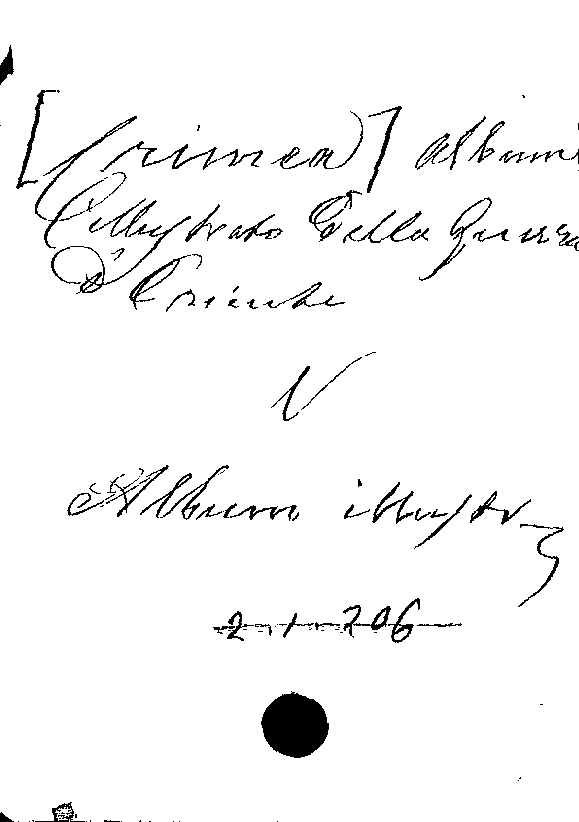 [Crimea] Album
Illustrato Della Guerra
D' Oriente
V
Album illustr
2.1.206